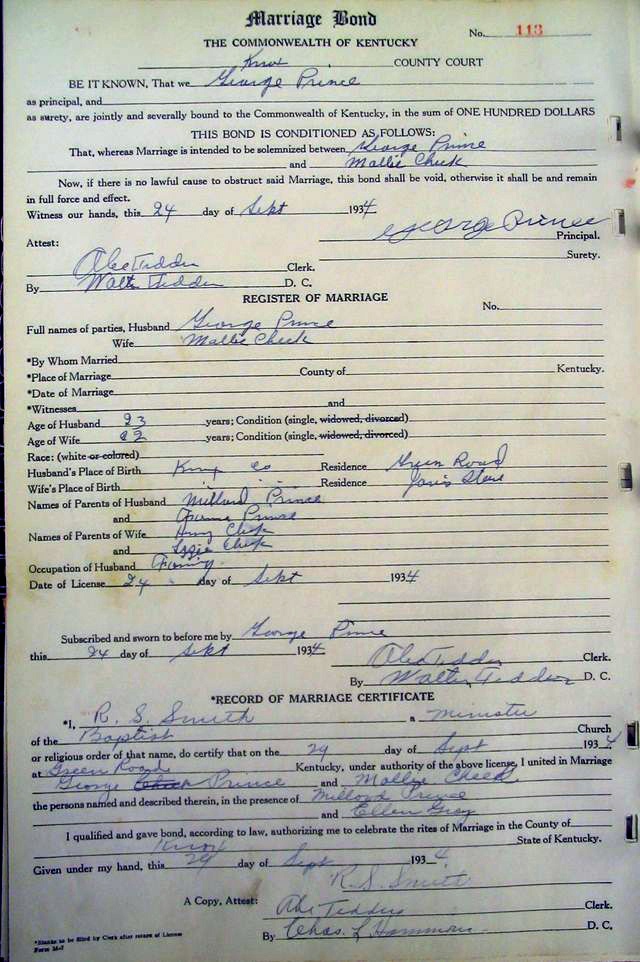 Marriage Bond
No. 113
THE COMMONWEALTH OF KENTUCKY
Knox, COUNTY COURT
BE IT KNOWN, That we George Prince
as principal, and
as surety, are jointly and severally bound to the Commonwealth of Kentucky, in the sum of ONE HUNDRED DOLLARS
THIS BOND IS CONDITIONED AS FOLLOWS:
That, whereas Marriage is intended to be solemnized between George Prince
and Mallie Cheek
Now, if there is no lawful cause to obstruct said Marriage, this bond shall be void, otherwise it shall be and remain
in full force and effect.
Witness our hands, this 24 day of Sept 1934
George Prince
Principal.
Attest:
Surety.
Abe Tedder Clerk.
By Walter Tedder D. C.
REGISTER OF MARRIAGE
No.
Full names of parties, Husband George Prince
Wife Mallie Cheek
*By Whom Married
*Place of Marriage County of Kentucky.
*Date of Marriage
*Witnesses and
Age of Husband 23 years; Condition (single, widowed, divorced)
Age of Wife 22 years; Condition (single, widowed, divorced)
Race: (white or colored)
Husband's Place of Birth Knox Co Residence Green Road
Wife's Place of Birth " " Residence Store
Names of Parents of Husband Millard Prince
and Prince
Names of Parents of Wife Cheek
and Cheek
Occupation of Husband Farming
Date of License 24 day of Sept 1934
Subscribed and sworn to before me by George Prince
this 24 day of Sept 1934
Abe Tedder Clerk.
By Walter Tedder D. C.
*RECORD OF MARRIAGE CERTIFICATE
*I, R. S. Smith a Minister
of the Baptist Church
or religious order of that name, do certify that on the 29 day of Sept 1934
at Green Road Kentucky, under authority of the above license, I united in Marriage
George Prince and Mallie Cheek
the persons named and described therein, in the presence of Millard Prince
and Ellen Gray
I qualified and gave bond, according to law, authorizing me to celebrate the rites of Marriage in the County of
Knox State of Kentucky.
Given under my hand, this 29 day of Sept 1934.
R. S. Smith
A Copy, Attest: Abe Tedders Clerk.
By Chas. L. Hammons D. C.
*Blanks to be filled by Clerk after return of License
Form 36-7